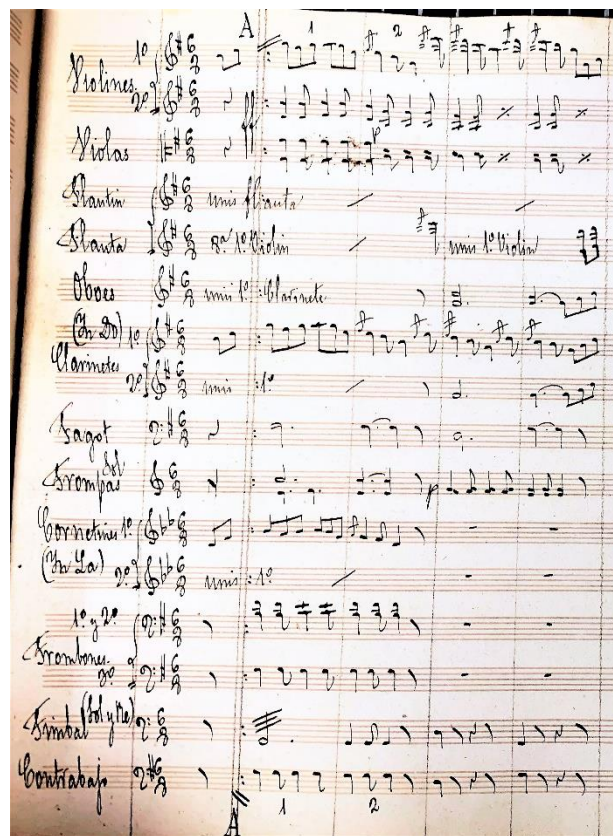 A
1 2
1º
Violines
2º
ff
p
Violas
Flautin unis flauta
Flauta 8ª 1º Violin unis 1º Violin
Oboes unis 1º Clarinete
(In Do) 1º
Clarinetes
2º unis 1º
Fagot
Sol
Trompas p
Cornetines 1º
(In La) 2º unis 1º
1º y 2º
Trombones
3º
Timbal (Sol y Re)
Contrabajo
1 2
A